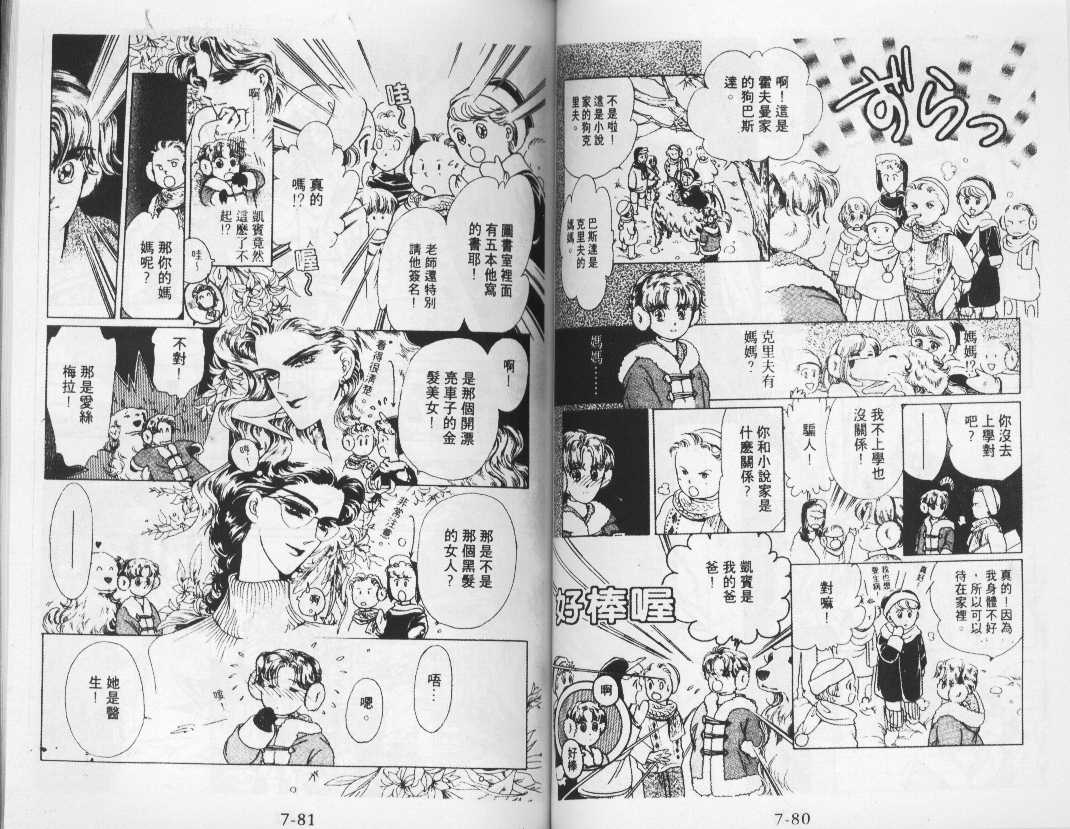 ずらっ
啊！這是
霍夫曼家
的狗巴斯
達。
不是啦！
這是小說
家的狗克
里夫。
巴斯達是
克里夫的
媽媽。
媽媽!?
克里夫有
媽媽？
媽媽……
你沒去
上學對
吧？
我不上學也
沒關係！
騙人！
你和小說家是
什麼關係？
真的！因為
我身體不好
，所以可以
待在家裡。
真好！
我也想
要生病！
對嘛！
凱賓是
我的爸
爸！
好棒喔
啊
好棒
7-80
哇
圖書室裡面
有五本他寫
的書耶！
老師還特別
請他簽名！
真的
嗎!?
喔
啊
凱賓竟然
這麼了不
起!?
哇！
那你的媽
媽呢？
啊！
是那個開漂
亮車子的金
髮美女！
看得很清楚
不對！
那是愛絲
梅拉！
那是不是
那個黑髮
的女人？
非常注意
啊
唔…
嗯。
她是醫
生！
7-81